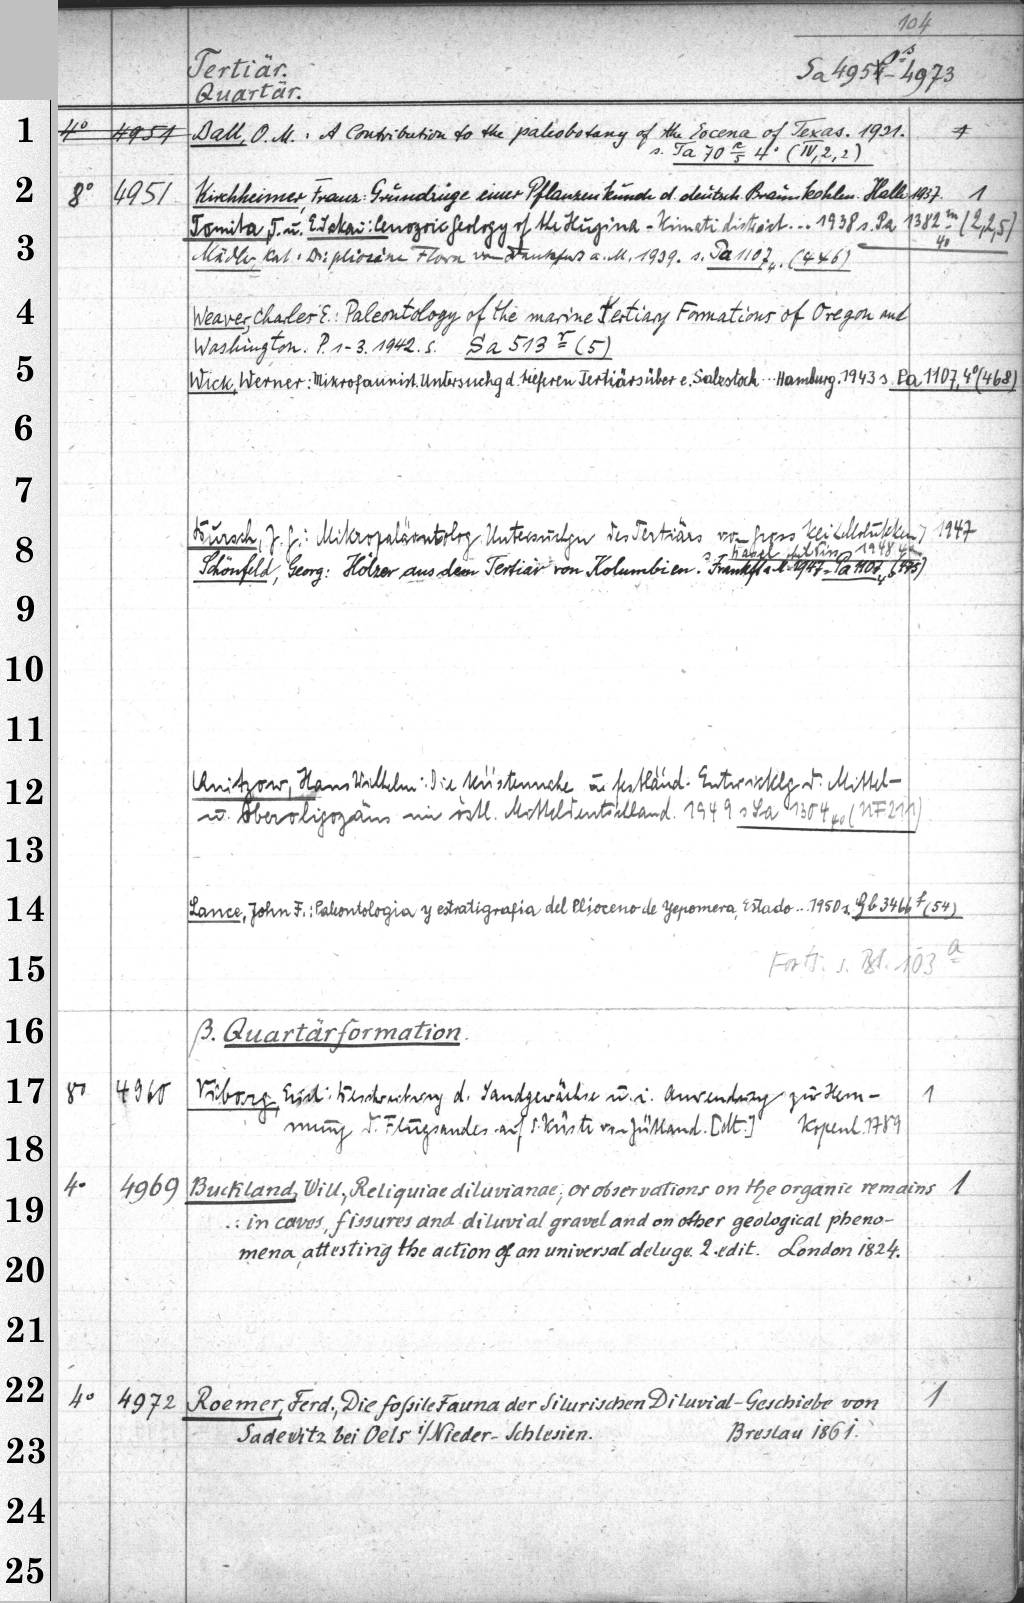 104
Tertiär.
Quartär.
Sa 4951 - 4973
1 4° 4951 Ball, O. M.: A Contribution to the paleobotany of the Eocena of Texas. 1931. 1
s. Ta 70 4° (IV, 2, 2)
2 8° 4951 Kirchheimer, Franz: Grundzüge einer Pflanzenkunde d. deutsch. Braunkohlen. Halle 1937. 1
Tomita, T. u. E. Sakai: Cenozoic Geology of the Huzina - Kinneti district... 1938 s. Pa 1382 m 4° (2,2,5)
3 Mädler, Karl: Die pliozäne Flora von Frankfurt a. M. 1939. s. Pa 1107 4°. (446)
4 Weaver, Charles E.: Paleontology of the marine Tertiary Formations of Oregon and
Washington. P. 1-3. 1942. s. Sa 513 r (5)
5 Wick, Werner: Mikrofaunist. Untersuchg d. tieferen Tertiärs über e. Salzstock ... Hamburg. 1943 s. Pa 1107, 4° (468)
6
7
J. G.: Mikropaläontolog. Untersuchgn des Tertiärs von Gross 1947
8 Kassel 1948
Schönfeld, Georg: Hölzer aus dem Tertiär von Kolumbien. Frankft a. M. 1947 Pa 1107 4° (475)
9
10
11
12 Hans Wilhelm: Die Küstennahe u. festländ. Entwicklg d. Mittel-
u. Oberoligozäns im östl. Mitteldeutschland. 1949 s Sa 1304 4° (NF 211)
13
14 Lance, John F.: Paleontologia y estratigrafia del Plioceno de Yepomera, Estado ... 1950 s. Gb 3466 f (54)
15 Forts. s. Bl. 103 a
16 β. Quartärformation.
17 8° 4960 Viborg, Erich: Beschreibung d. Sandgewächse u. i. Anwendung zur Hem- 1
mung d. Flugsandes auf d. Küste von Jütland. [dt.] Kopenh. 1789
18
4° 4969 Buckland, Will., Reliquiae diluvianae; or observations on the organic remains 1
19 in caves, fissures and diluvial gravel and on other geological pheno-
mena, attesting the action of an universal deluge. 2. edit. London 1824.
20
21
22 4° 4972 Roemer, Ferd., Die fossile Fauna der Silurischen Diluvial-Geschiebe von 1
Sadewitz bei Oels i/Nieder-Schlesien. Breslau 1861.
23
24
25